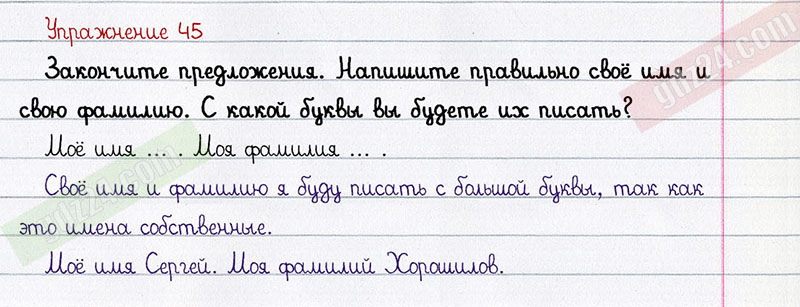 Упражнение 45
Закончите предложения. Напишите правильно своё имя и
свою фамилию. С какой буквы вы будете их писать?
Моё имя ... . Моя фамилия ... .
Своё имя и фамилию я буду писать с большой буквы, так как
это имена собственные.
Моё имя Сергей. Моя фамилий Хорошилов.
gdz24.com
gdz24.com